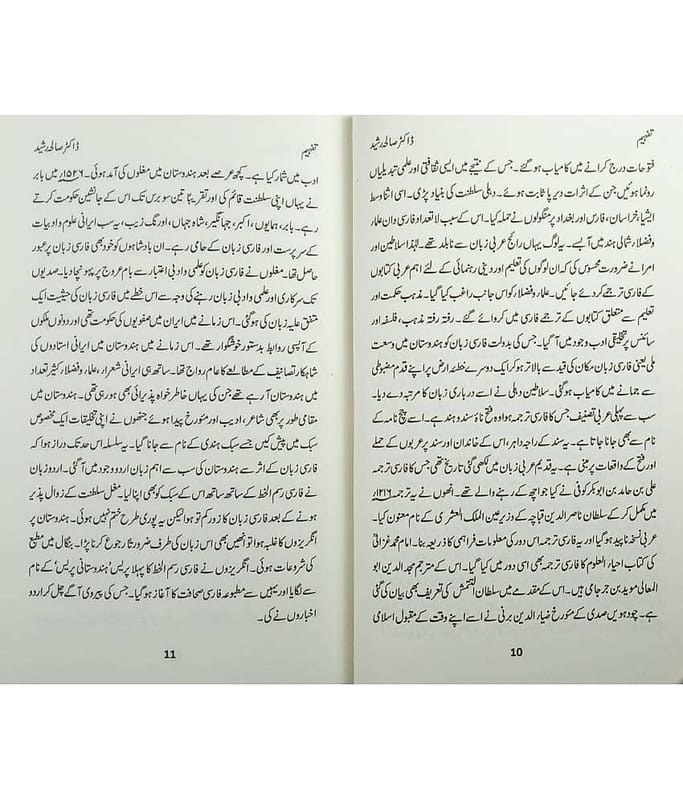 تفہیم ڈاکٹر صالحہ رشید
فتوحات درج کرانے میں کامیاب ہو گئے۔ جس کے نتیجے میں ایسی ثقافتی اور علمی تبدیلیاں
رونما ہوئیں جن کے اثرات دیر پا ثابت ہوئے۔ دہلی سلطنت کی بنیاد پڑی۔ اسی اثنا وسط
ایشیا، خراسان، فارس اور بغداد پر منگولوں نے حملہ کیا۔ اس کے سبب لا تعداد فارسی دان علماء
و فضلاء شمالی ہند میں آبسے۔ یہ لوگ یہاں رائج عربی زبان سے نا بلد تھے۔ لہٰذا سلاطین اور
امرا نے ضرورت محسوس کی کہ ان لوگوں کی تعلیم اور دینی رہنمائی کے لئے اہم عربی کتابوں
کے فارسی ترجمے کر دئے جائیں۔ علماء و فضلاء کو اس جانب راغب کیا گیا۔ مذہب، حکمت اور
تعلیم سے متعلق کتابوں کے ترجمے فارسی میں کروائے گئے۔ رفتہ رفتہ مذہب، فلسفہ اور
سائنس پر تخلیقی ادب وجود میں آ گیا۔ جس کی بدولت فارسی زبان کو ہندوستان میں وسعت
ملی یعنی فارسی زبان مکان کی قید سے بالاتر ہو کر ایک دوسرے خطۂ ارض پر اپنے قدم مضبوطی
سے جمانے میں کامیاب ہو گئی۔ سلاطین دہلی نے اسے درباری زبان کا مرتبہ دے دیا۔
سب سے پہلی عربی تصنیف جس کا فارسی ترجمہ ہوا وہ فتح نامۂ سند و ہند ہے۔ اسے چچ نامہ کے
نام سے بھی جانا جاتا ہے۔ یہ سند کے راجہ داہر، اس کے خاندان اور سند پر عربوں کے حملے
اور فتح کے واقعات پر مبنی ہے۔ یہ قدیم عربی زبان میں لکھی گئی تاریخ تھی جس کا فارسی ترجمہ
علی بن حامد بن ابو بکر کوفی نے کیا جو اچھ کے رہنے والے تھے۔ انھوں نے یہ ترجمہ ۱۲۱۶ء
میں مکمل کر کے سلطان ناصر الدین قباچہ کے وزیر عین الملک العشری کے نام معنون کیا۔
عربی نسخہ نا پید ہو گیا اور یہ فارسی ترجمہ اس دور کی معلومات فراہمی کا ذریعہ بنا۔ امام محمد غزالیؒ
کی کتاب احیاء العلوم کا فارسی ترجمہ بھی اسی دور میں کیا گیا۔ اس کے مترجم مجد الدین ابو
المعالی موید بن جرجامی ہیں۔ اس کے مقدمے میں سلطان التمش کی تعریف بھی بیان کی گئی
ہے۔ چودھویں صدی کے مؤرخ ضیاء الدین برنی نے اسے اپنے وقت کے مقبول اسلامی
10
تفہیم ڈاکٹر صالحہ رشید
ادب میں شمار کیا ہے۔ کچھ عرصے بعد ہندوستان میں مغلوں کی آمد ہوئی۔ ۱۵۲۶ء میں بابر
نے یہاں اپنی سلطنت قائم کی اور تقریباً تین سو برس تک اس کے جانشین حکومت کرتے
رہے۔ بابر، ہمایوں، اکبر، جہانگیر، شاہ جہاں، اورنگ زیب، یہ سب ایرانی علوم و ادبیات
کے سرپرست اور فارسی زبان کے حامی رہے۔ ان بادشاہوں کو خود بھی فارسی زبان پر عبور
حاصل تھا۔ مغلوں نے فارسی زبان کو علمی و ادبی اعتبار سے بام عروج پر پہونچا دیا۔ صدیوں
تک سرکاری اور علمی و ادبی زبان رہنے کی وجہ سے اس خطے میں فارسی زبان کی حیثیت ایک
متفق علیہ زبان کی ہو گئی۔ اس زمانے میں ایران میں صفویوں کی حکومت تھی اور دونوں ملکوں
کے آپسی روابط بدستور خوشگوار تھے۔ اس زمانے میں ہندوستان میں ایرانی استادوں کی
شاہکار تصانیف کے مطالعے کا عام رواج تھا۔ ساتھ ہی ایرانی شعراء، علماء و فضلاء کثیر تعداد
میں ہندوستان آ رہے تھے جن کی یہاں خاطر خواہ پذیرائی بھی ہو رہی تھی۔ ہندوستان میں
مقامی طور پر بھی شاعر، ادیب اور مؤرخ پیدا ہوئے جنھوں نے اپنی تخلیقات ایک مخصوص
سبک میں پیش کیں جسے سبک ہندی کے نام سے جانا گیا۔ یہ سلسلہ اس حد تک دراز ہوا کہ
فارسی زبان کے اثر سے ہندوستان کی سب سے اہم زبان اردو وجود میں آ گئی۔ اردو زبان
نے فارسی رسم الخط کے ساتھ ساتھ اس کے سبک کو بھی اپنا لیا۔ مغل سلطنت کے زوال پذیر
ہونے کے بعد فارسی زبان کا زور کم تو ہوا لیکن یہ پوری طرح ختم نہیں ہوئی۔ ہندوستان پر
انگریزوں کا غلبہ ہوا تو انھیں بھی اس زبان کی طرف ضرورتاً رجوع کرنا پڑا۔ بنگال میں مطبع
کی شروعات ہوئی۔ انگریزوں نے فارسی رسم الخط کا پہلا پریس 'ہندوستانی پریس' کے نام
سے لگایا اور یہیں سے مطبوعہ فارسی صحافت کا آغاز ہو گیا۔ جس کی پیروی آگے چل کر اردو
اخباروں نے کی۔
11